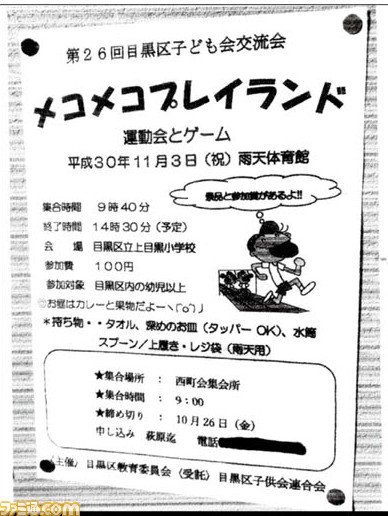 第26回目黒区子ども会交流会
メコメコプレイランド
運動会とゲーム
平成30年11月3日（祝）雨天体育館
景品と参加賞があるよ!!
集合時間 9時40分
終了時間 14時30分（予定）
会 場 目黒区立上目黒小学校
参加費 100円
参加対象 目黒区内の幼児以上
お昼はカレーと果物だよー
＊持ち物・・タオル、深めのお皿（タッパーOK）、水筒
スプーン／上履き・レジ袋（雨天用）
★集合場所 ： 西町会集会所
★集合時間 ： 9：00
★締め切り ： 10月26日（金）
申し込み 萩原迄 電話
〈主催〉目黒区教育委員会〈受託〉目黒区子供会連合会
ファミ通.com